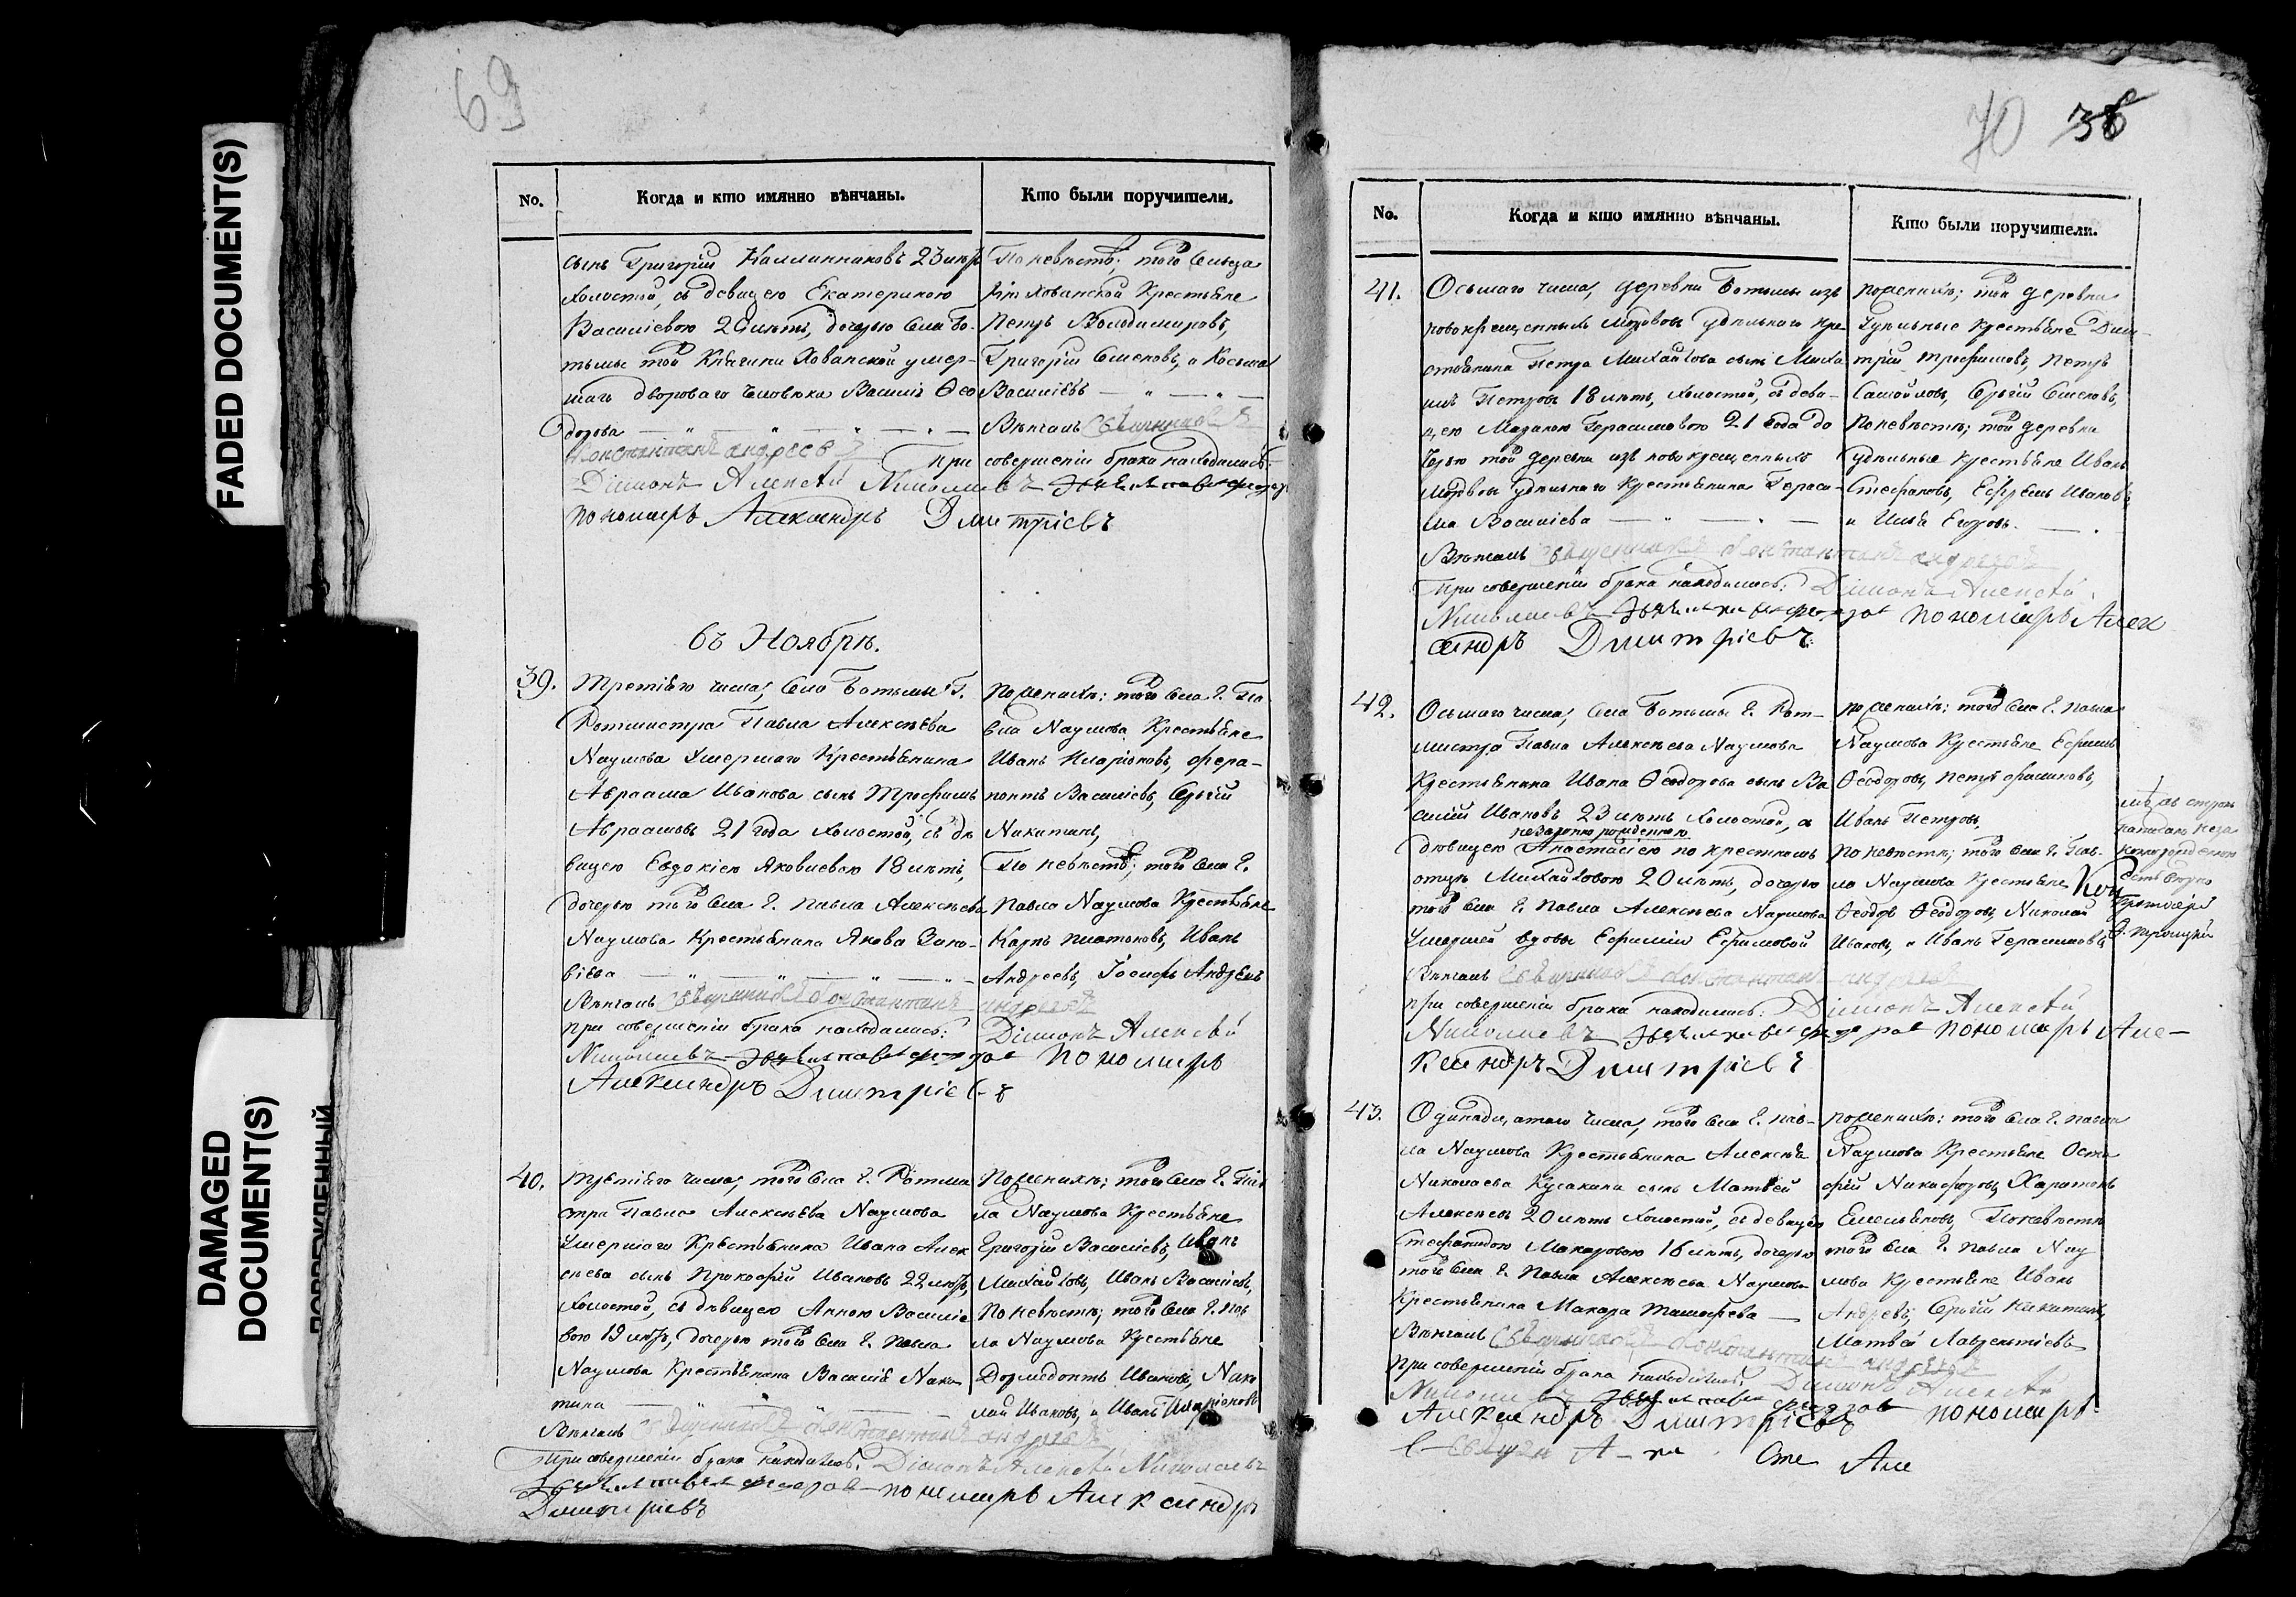 FADED DOCUMENT(S)
DAMAGED
DOCUMENT(S)
ПОВРЕЖДЕННЫЙ
69
No.
Когда и кто имянно вѣнчаны.
Кто были поручители.
сынъ Григорій Каллинниковъ 23 лѣтъ
холостой, съ девицею Екатериною
Василіевою 20 лѣтъ, дочерью села Бо-
тьмы той Княгини Хованской умер-
шаго двороваго человѣка Василія Ѳео
дорова
Константинъ Андреевъ При
Діаконъ Алексѣй Николаевъ
пономарь Александръ Дмитріевъ
По невѣстѣ; того села
Хованской Крестьяне
Петръ Володимировъ,
Григорій Семеновъ, и Косьма
Василіевъ
Вѣнчалъ Священникъ
совершеніи брака находились:
въ Ноябрѣ.
39.
Третіяго числа, села Ботьмы Г.
Ротмистра Павла Алексѣева
Наумова умершаго Крестьянина
Авраама Иванова сынъ Трофимъ
Авраамовъ 21 года холостой, съ дѣ
вицею Евдокіею Яковлевою 18 лѣтъ,
дочерью того села Г. Павла Алексѣева
Наумова Крестьянина Якова Зино-
віева
Вѣнчалъ Священникъ Константинъ Андреевъ
при совершеніи брака находились: Діаконъ Алексѣй
Николаевъ пономарь
Александръ Дмитріевъ
По женихѣ: того села Г. Па
вла Наумова Крестьяне
Иванъ Иларіоновъ, Фера-
понтъ Василіевъ, Сергій
Никитинъ,
По невѣстѣ; того села Г.
Павла Наумова Крестьяне
Карпъ Платоновъ, Иванъ
Андреевъ, Іосифъ Андреевъ
40.
Третіяго числа, того села Г. Ротми
стра Павла Алексѣева Наумова
умершаго Крестьянина Ивана Алек
сѣева сынъ Прокофій Ивановъ 22 лѣтъ,
холостой, съ дѣвицею Анною Василіе
вою 19 лѣтъ, дочерью того села Г. Павла
Наумова Крестьянина Василія Ники
тина
Вѣнчалъ Священникъ Константинъ Андреевъ
При совершеніи брака находились: Діаконъ Алексѣй Николаевъ
пономарь Александръ
Дмитріевъ
По женихѣ; того села Г. Пав
ла Наумова Крестьяне
Григорій Василіевъ, Иванъ
Михайловъ, Иванъ Василіевъ,
По невѣстѣ; того села Г. Пав
ла Наумова Крестьяне
Дормедонтъ Ивановъ, Нико
лай Ивановъ, и Иванъ Иларіоновъ
70 38
No.
Когда и кто имянно вѣнчаны.
Кто были поручители.
41.
Осьмаго числа, деревни Ботьмы изъ
новокрещенныхъ Мордовъ удѣльнаго кре
стьянина Петра Михайлова сынъ Миха
илъ Петровъ 18 лѣтъ, холостой, съ деви-
цею Мариною Герасимовою 21 года до
черью той деревни изъ новокрещенныхъ
Мордвовъ удѣльнаго Крестьянина Гераси-
ма Василіева
Вѣнчалъ Священникъ Константинъ Андреевъ
При совершеніи брака находились: Діаконъ Алексѣй
Николаевъ пономарь Алек
сандръ Дмитріевъ
По женихѣ; той деревни
Удѣльные Крестьяне Дими-
трій Трофимовъ, Петръ
Самойловъ, Сергій Семеновъ,
По невѣстѣ; той деревни
удѣльные Крестьяне Иванъ
Стефановъ, Ефремъ Ивановъ
и Илья Егоровъ.
42.
Осьмаго числа, села Ботьмы Г. Рот-
мистра Павла Алексѣева Наумова
Крестьянина Ивана Ѳеодорова сынъ Ва
силій Ивановъ 23 лѣтъ холостой, съ
незаконно рожденною
дѣвицею Анастасіею по крестномъ
отцѣ Михайловою 20 лѣтъ, дочерью
того села Г. Павла Алексѣева Наумова
умершей вдовы Ефиміи Ефимовой
Вѣнчалъ Священникъ Константинъ Андреевъ
при совершеніи брака находились: Діаконъ Алексѣй
Николаевъ пономарь Але-
ксандръ Дмитріевъ
По женихѣ: того села Г. Павла
Наумова Крестьяне Ефимъ
Ѳеодоровъ, Петръ Филиповъ,
Иванъ Петровъ,
По невѣстѣ; того села Г. Пав-
ла Наумова Крестьяне
Ѳеодоръ Ѳеодоровъ, Николай
Ивановъ, и Иванъ Герасимовъ
43.
Одинадцатаго числа, того села Г. Пав-
ла Наумова Крестьянина Алексѣя
Николаева Кусакина сынъ Матвей
Алексѣевъ 20 лѣтъ холостой, съ девицею
Стефанидою Макаровою 16 лѣтъ, дочерью
того села Г. Павла Алексѣева Наумова
Крестьянина Макара Тимофеева
Вѣнчалъ Священникъ Константинъ Андреевъ
При совершеніи брака находились: Діаконъ Алексѣй
Николаевъ пономарь
Александръ Дмитріевъ
По женихѣ: того села Г. Павла
Наумова Крестьяне
Никифоровъ, Харитонъ
Емельяновъ, По невѣстѣ
того села Г. Павла Нау
мова Крестьяне Иванъ
Андреевъ, Сергій Никитинъ,
Матвѣй Лаврентіевъ